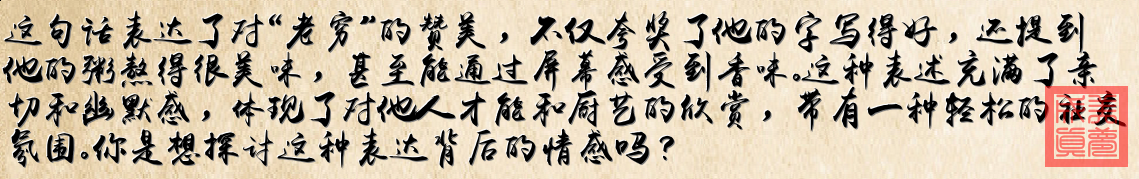 这句话表达了对“老穷”的赞美，不仅夸奖了他的字写得好，还提到
他的粥熬得很美味，甚至能通过屏幕感受到香味。这种表述充满了亲
切和幽默感，体现了对他人才能和厨艺的欣赏，带有一种轻松的社交
氛围。你是想探讨这种表达背后的情感吗？